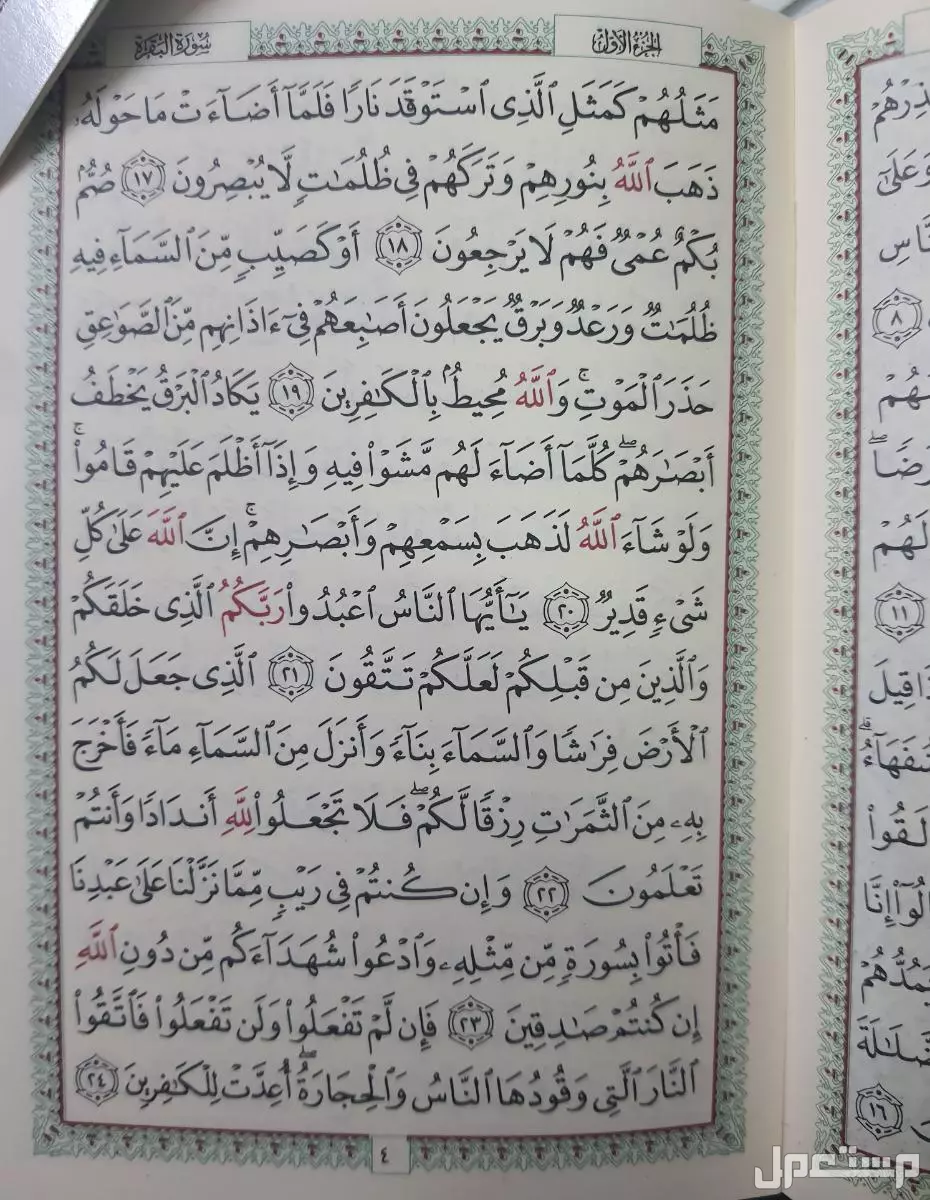 سُورَةُ البَقَرَة
الجُزءُ الأوّل
مَثَلُهُمْ كَمَثَلِ ٱلَّذِى ٱسْتَوْقَدَ نَارًا فَلَمَّآ أَضَآءَتْ مَا حَوْلَهُۥ
ذَهَبَ ٱللَّهُ بِنُورِهِمْ وَتَرَكَهُمْ فِى ظُلُمَٰتٍ لَّا يُبْصِرُونَ ١٧ صُمٌّۢ
بُكْمٌ عُمْىٌ فَهُمْ لَا يَرْجِعُونَ ١٨ أَوْ كَصَيِّبٍ مِّنَ ٱلسَّمَآءِ فِيهِ
ظُلُمَٰتٌ وَرَعْدٌ وَبَرْقٌ يَجْعَلُونَ أَصَٰبِعَهُمْ فِىٓ ءَاذَانِهِم مِّنَ ٱلصَّوَٰعِقِ
حَذَرَ ٱلْمَوْتِ ۚ وَٱللَّهُ مُحِيطٌۢ بِٱلْكَٰفِرِينَ ١٩ يَكَادُ ٱلْبَرْقُ يَخْطَفُ
أَبْصَٰرَهُمْ ۖ كُلَّمَآ أَضَآءَ لَهُم مَّشَوْا۟ فِيهِ وَإِذَآ أَظْلَمَ عَلَيْهِمْ قَامُوا۟ ۚ
وَلَوْ شَآءَ ٱللَّهُ لَذَهَبَ بِسَمْعِهِمْ وَأَبْصَٰرِهِمْ ۚ إِنَّ ٱللَّهَ عَلَىٰ كُلِّ
شَىْءٍ قَدِيرٌ ٢٠ يَٰٓأَيُّهَا ٱلنَّاسُ ٱعْبُدُوا۟ رَبَّكُمُ ٱلَّذِى خَلَقَكُمْ
وَٱلَّذِينَ مِن قَبْلِكُمْ لَعَلَّكُمْ تَتَّقُونَ ٢١ ٱلَّذِى جَعَلَ لَكُمُ
ٱلْأَرْضَ فِرَٰشًا وَٱلسَّمَآءَ بِنَآءً وَأَنزَلَ مِنَ ٱلسَّمَآءِ مَآءً فَأَخْرَجَ
بِهِۦ مِنَ ٱلثَّمَرَٰتِ رِزْقًا لَّكُمْ ۖ فَلَا تَجْعَلُوا۟ لِلَّهِ أَندَادًا وَأَنتُمْ
تَعْلَمُونَ ٢٢ وَإِن كُنتُمْ فِى رَيْبٍ مِّمَّا نَزَّلْنَا عَلَىٰ عَبْدِنَا
فَأْتُوا۟ بِسُورَةٍ مِّن مِّثْلِهِۦ وَٱدْعُوا۟ شُهَدَآءَكُم مِّن دُونِ ٱللَّهِ
إِن كُنتُمْ صَٰدِقِينَ ٢٣ فَإِن لَّمْ تَفْعَلُوا۟ وَلَن تَفْعَلُوا۟ فَٱتَّقُوا۟
ٱلنَّارَ ٱلَّتِى وَقُودُهَا ٱلنَّاسُ وَٱلْحِجَارَةُ ۖ أُعِدَّتْ لِلْكَٰفِرِينَ ٢٤
٤
وَعَلَىٰ
٨
لَهُمْ
١١
لَقُوا۟
١٦
مستعمل